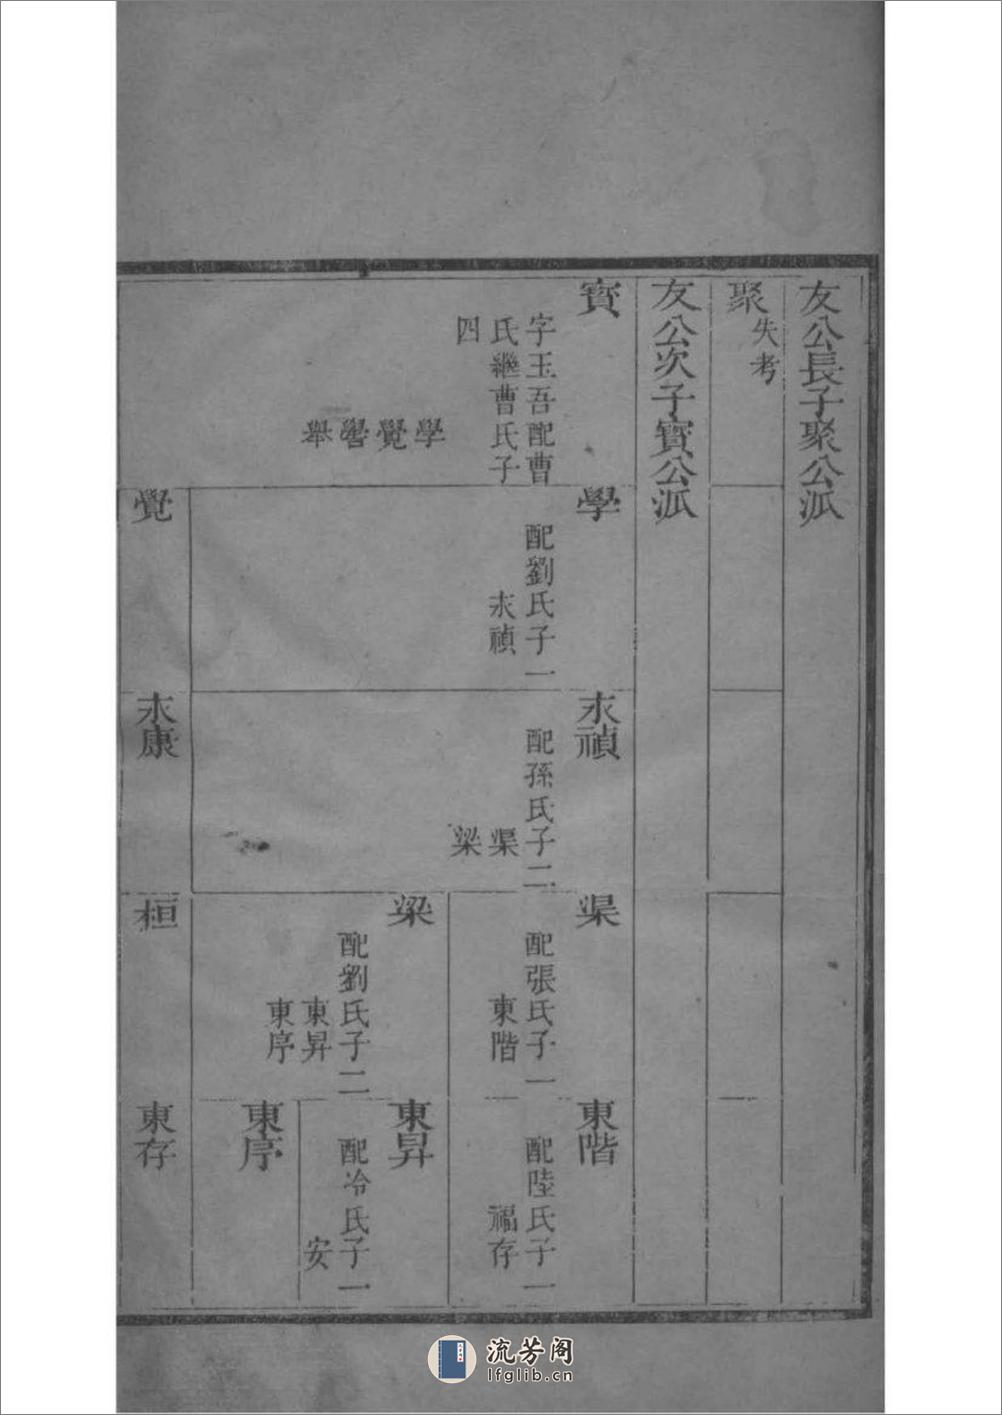 友公長子聚公派
聚
失考
友公次子寶公派
寶
字玉吾配曹
氏繼曹氏子
四
學
覺
譽
舉
學
配劉氏子一
永禎
永禎
配孫氏子二
渠
梁
渠
配張氏子一
東階
東階
配陸氏子一
福存
梁
配劉氏子二
東昇
東序
東昇
配冷氏子一
安
東序
覺
永康
桓
東存
流芳阁
lfglib.cn